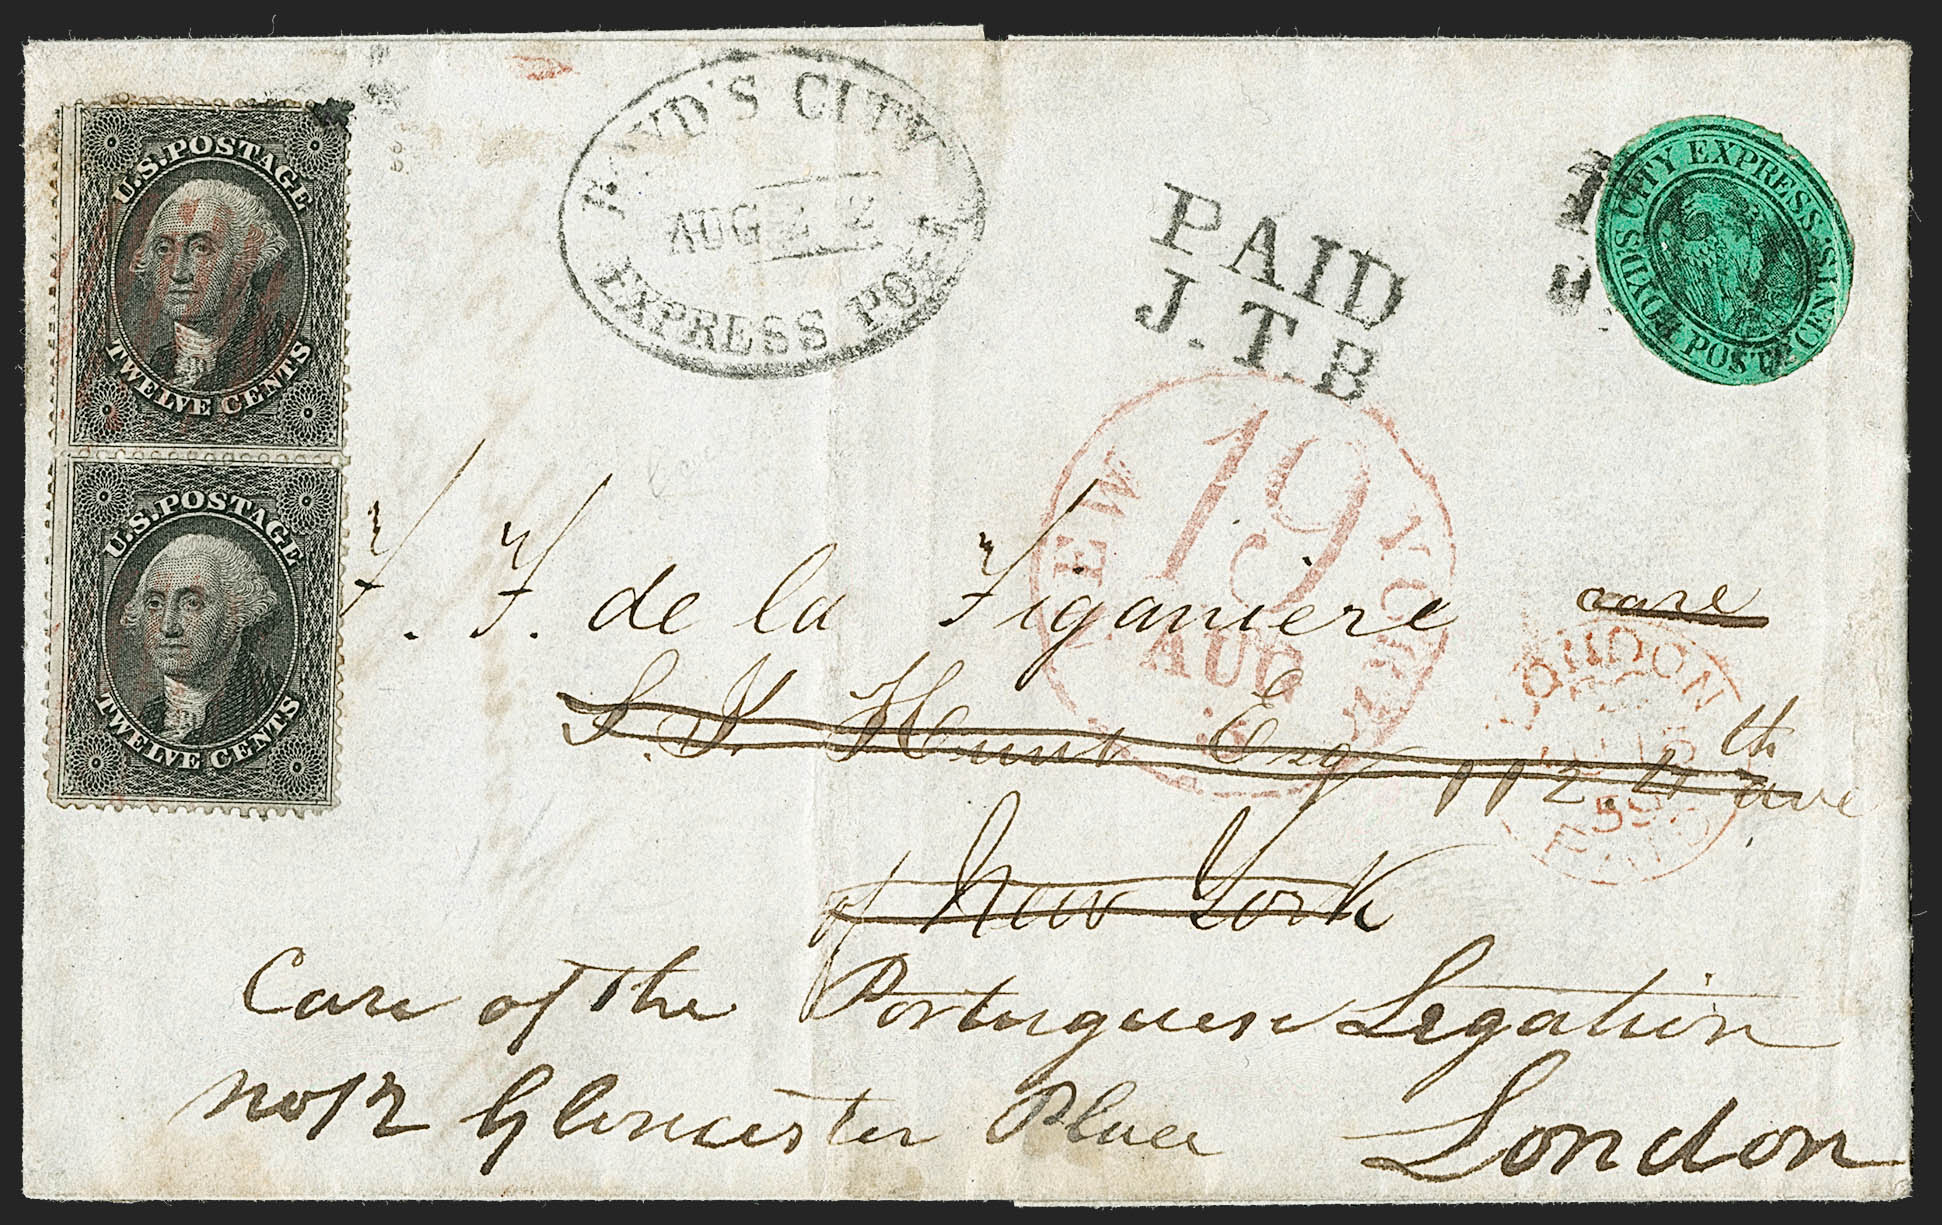 U.S. POSTAGE
TWELVE CENTS
U.S. POSTAGE
TWELVE CENTS
BOYD'S CITY
AUG 22
EXPRESS POST
PAID
J.T.B
BOYD'S CITY EXPRESS
POST 2 CENTS.
NEW YORK
19
AUG
LONDON
PAID
F. F. de la Figaniere care
S. Y. Hunt Esq 112. 4th ave
of New York
Care of the Portuguese Legation
No 12 Gloucester Place London